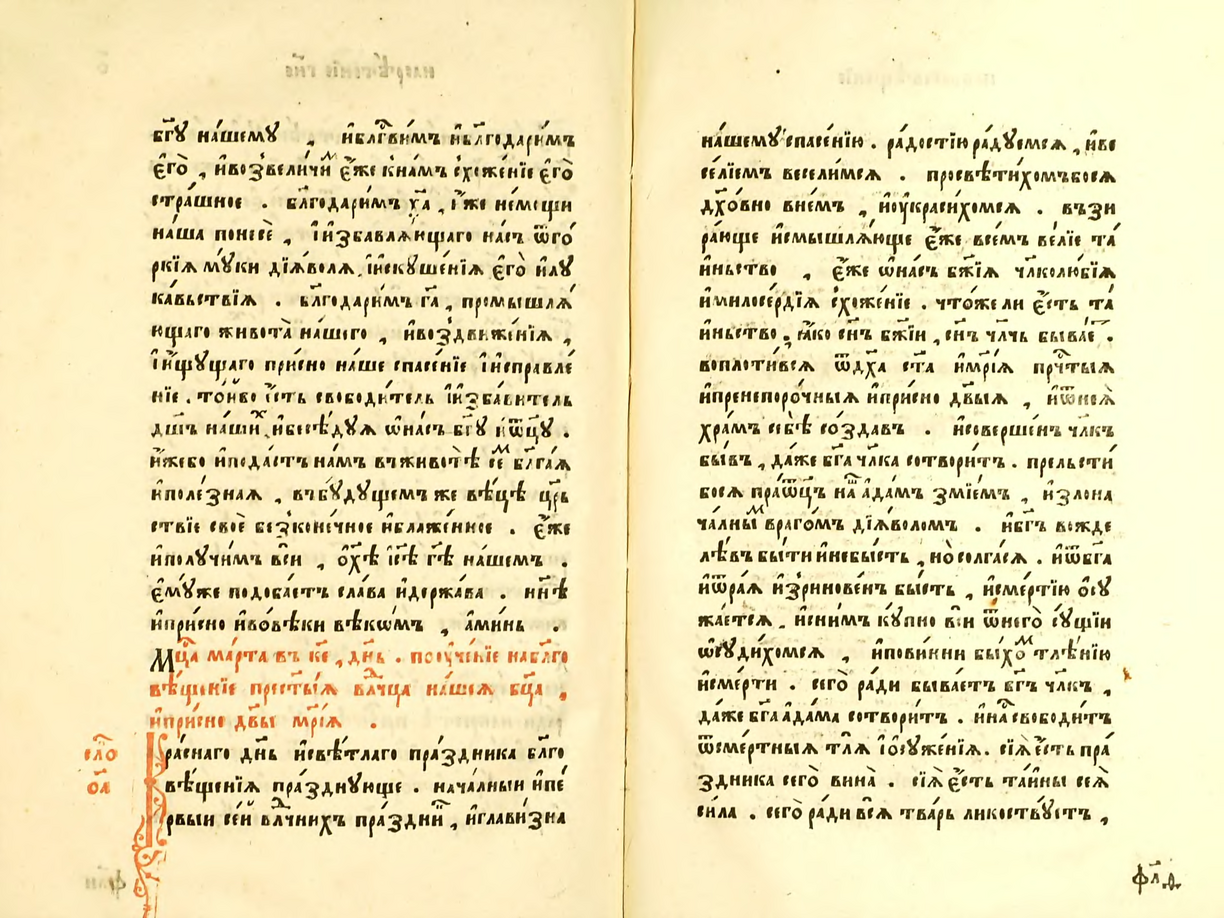 бг҃ꙋ на́шемꙋ , и҆блг҇ви́мъ и҆бл҃годари́мъ
є҆го̀ , и҆возвели́чиⷨ є҆́же кна́мъ схожє́нїе є҆го̀
стра́шное . бл҃годари́мъ хⷭ҇а̀ , і҆́же не́мощи
на́ша понесѐ , і҆избавлѧ́ющаго на́съ ѿго́
ркїѧ мꙋ́ки дїѧ́волѧ, і҆искꙋше́нїѧ є҆го̀ и҆лꙋ
ка́вьствїѧ . бл҃годари́мъ гⷭ҇а̀ , промышлѧ́
ющаго живота̀ на́шего , и҆воздвиже́нїѧ ,
і҆и́щꙋщаго при́сно на́ше спасе́нїе і҆исправле́
нїе . то́йбо є҆́сть свободи́тель і҆изба́витель
дш҃ъ на́шиⷯ, и҆бесѣ́дꙋѧ ѡ҆на́съ бг҃ꙋ и҆ѻ҆ц҃ꙋ .
и҆́жебо и҆пода́стъ на́мъ вживотѣ̀ сеⷨ бл҃га́ѧ
и҆поле́знаѧ , вбꙋ́дꙋщемъ же вѣ́цѣ црⷭ҇
ствїе своѐ безконе́чное и҆блаже́нное . є҆́же
и҆полꙋчи́мъ всѝ , ѡ҆хⷭ҇ѣ̀ і҆с҃ѣ гдⷭ҇ѣ на́шемъ .
є҆мꙋ́же подоба́етъ сла́ва и҆держа́ва . нн҃ѣ
и҆при́сно и҆вовѣ́ки вѣкѡ́мъ , а҆ми́нь .
Мцⷭ҇а ма́рта въ к҃е , дн҃ь . поꙋче́нїе набл҃го
вѣ́щенїе прест҃ы́ѧ влⷣчца на́шеѧ бц҃а ,
и҆при́сно дв҃ы мр҃і́ѧ .
сло́
о҃а
Кра́снаго дн҃ь и҆свѣ́тлаго пра́здника бл҃го
вѣ́щенїѧ пра́зднꙋюще . нача́лныи и҆пе́
рвыи се́й влⷣчнихъ пра́здниⷦ , и҆глави́зна
на́шемꙋ спасе́нїю . ра́достїю ра́дꙋемсѧ , и҆ве
се́лїемъ весели́мсѧ . просвѣти́хомъбосѧ
дх҃о́вно вне́мъ , и҆ꙋ҆краси́хомсѧ . възи
ра́юще и҆смышлѧ́юще є҆́же всѣ́мъ ве́лїе та́
иньство , є҆́же ѡ҆на́съ бж҃їѧ чл҃колю́бїѧ
и҆милосе́рдїѧ схоже́нїе . что́же ли є҆́сть та́
иньство , ꙗ҆́ко сн҃ъ бж҃їи , сн҃ъ чл҃чь быва́еⷮ .
воплоти́всѧ ѿдх҃а ст҃а и҆мр҃і́ѧ прⷱ҇тыѧ
и҆пренепоро́чныѧ и҆при́сно дв҃ыѧ , и҆ѿнеѧ̀
хра́мъ себѣ̀ со́здавъ . и҆соверше́нъ чл҃къ
бы́въ , да́же бг҃а чл҃ка сотвори́тъ . прельсти́
босѧ праѻ҆ц҃ъ на́ш а҆да́мъ змі́емъ , и҆злона
ча́лныⷨ враго́мъ дїѧ́воломъ . и҆бг҃ъ вожде
лѣ́въ бы́ти и҆небы́сть , но́солга́сѧ . и҆ѿбг҃а
и҆ѿра́ѧ и҆зринове́нъ бы́сть , и҆сме́ртїю ѡ҆сꙋ
жа́етсѧ . и҆сни́мъ кꙋ́пно всѝ ѿнего̀ сꙋ́щїи
ѡ҆сꙋди́хомсѧ , и҆пови́нни бы́хоⷨ тлѣ́нїю
и҆сме́рти . сего̀ ра́ди быва́етъ бг҃ъ чл҃къ ,
да́же бг҃а а҆да́ма сотвори́тъ . и҆на́съ свободи́тъ
ѿсме́ртныѧ тлѧ̀ і҆ѡ҆сꙋже́нїѧ . сїѧ̀ є҆́сть пра́
здника сего̀ вина̀ . сїѧ̀ є҆́сть та́йны сеѧ̀
си́ла . сего̀ ра́ди всѧ̀ тва́рь ликоствꙋ́етъ ,
фл҃ѳ.